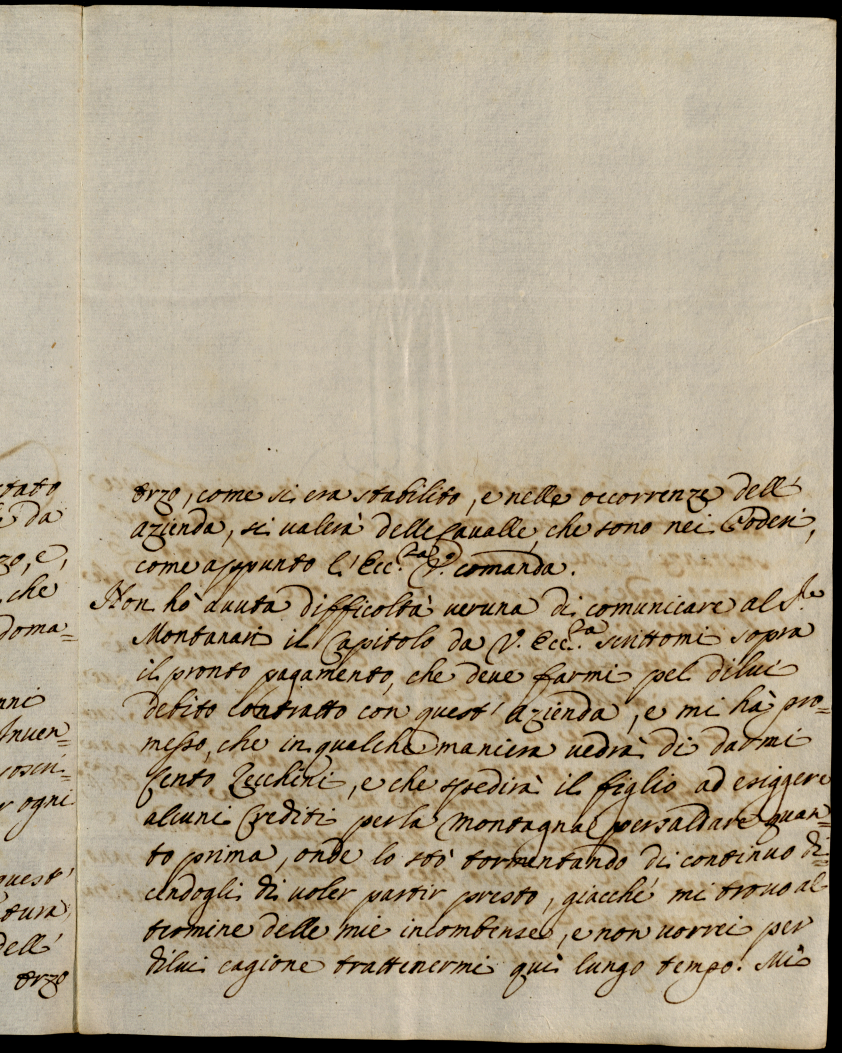 stato
da
zo, e,
che
doma=
nni
Inuen=
soscri=
r ogni
quest'
tura
dell'
orzo
orzo, come si era stabilito, e nelle occorrenze dell'
azienda, si valerà delle Cavalle, che sono nei Poderi,
come appunto l'Ecc.za V.ra comanda.
Non hò avuta difficoltà veruna di comunicare al S.re
Montanari il Capitolo da V. Ecc.za scrittomi sopra
il pronto pagamento, che deve farmi pel dilui
debito contratto con quest' azienda, e mi hà pro=
messo, che in qualche maniera vedrà di darmi
Cento Zecchini, e che spedirà il figlio ad esiggere
alcuni Crediti per la Montagna per saldare quan=
to prima, onde lo stò tormentando di continuo di=
cendogli di voler partir presto, giacché mi trovo al
termine delle mie incombenze, e non vorrei per
dilui cagione trattenermi quì lungo tempo. Mi